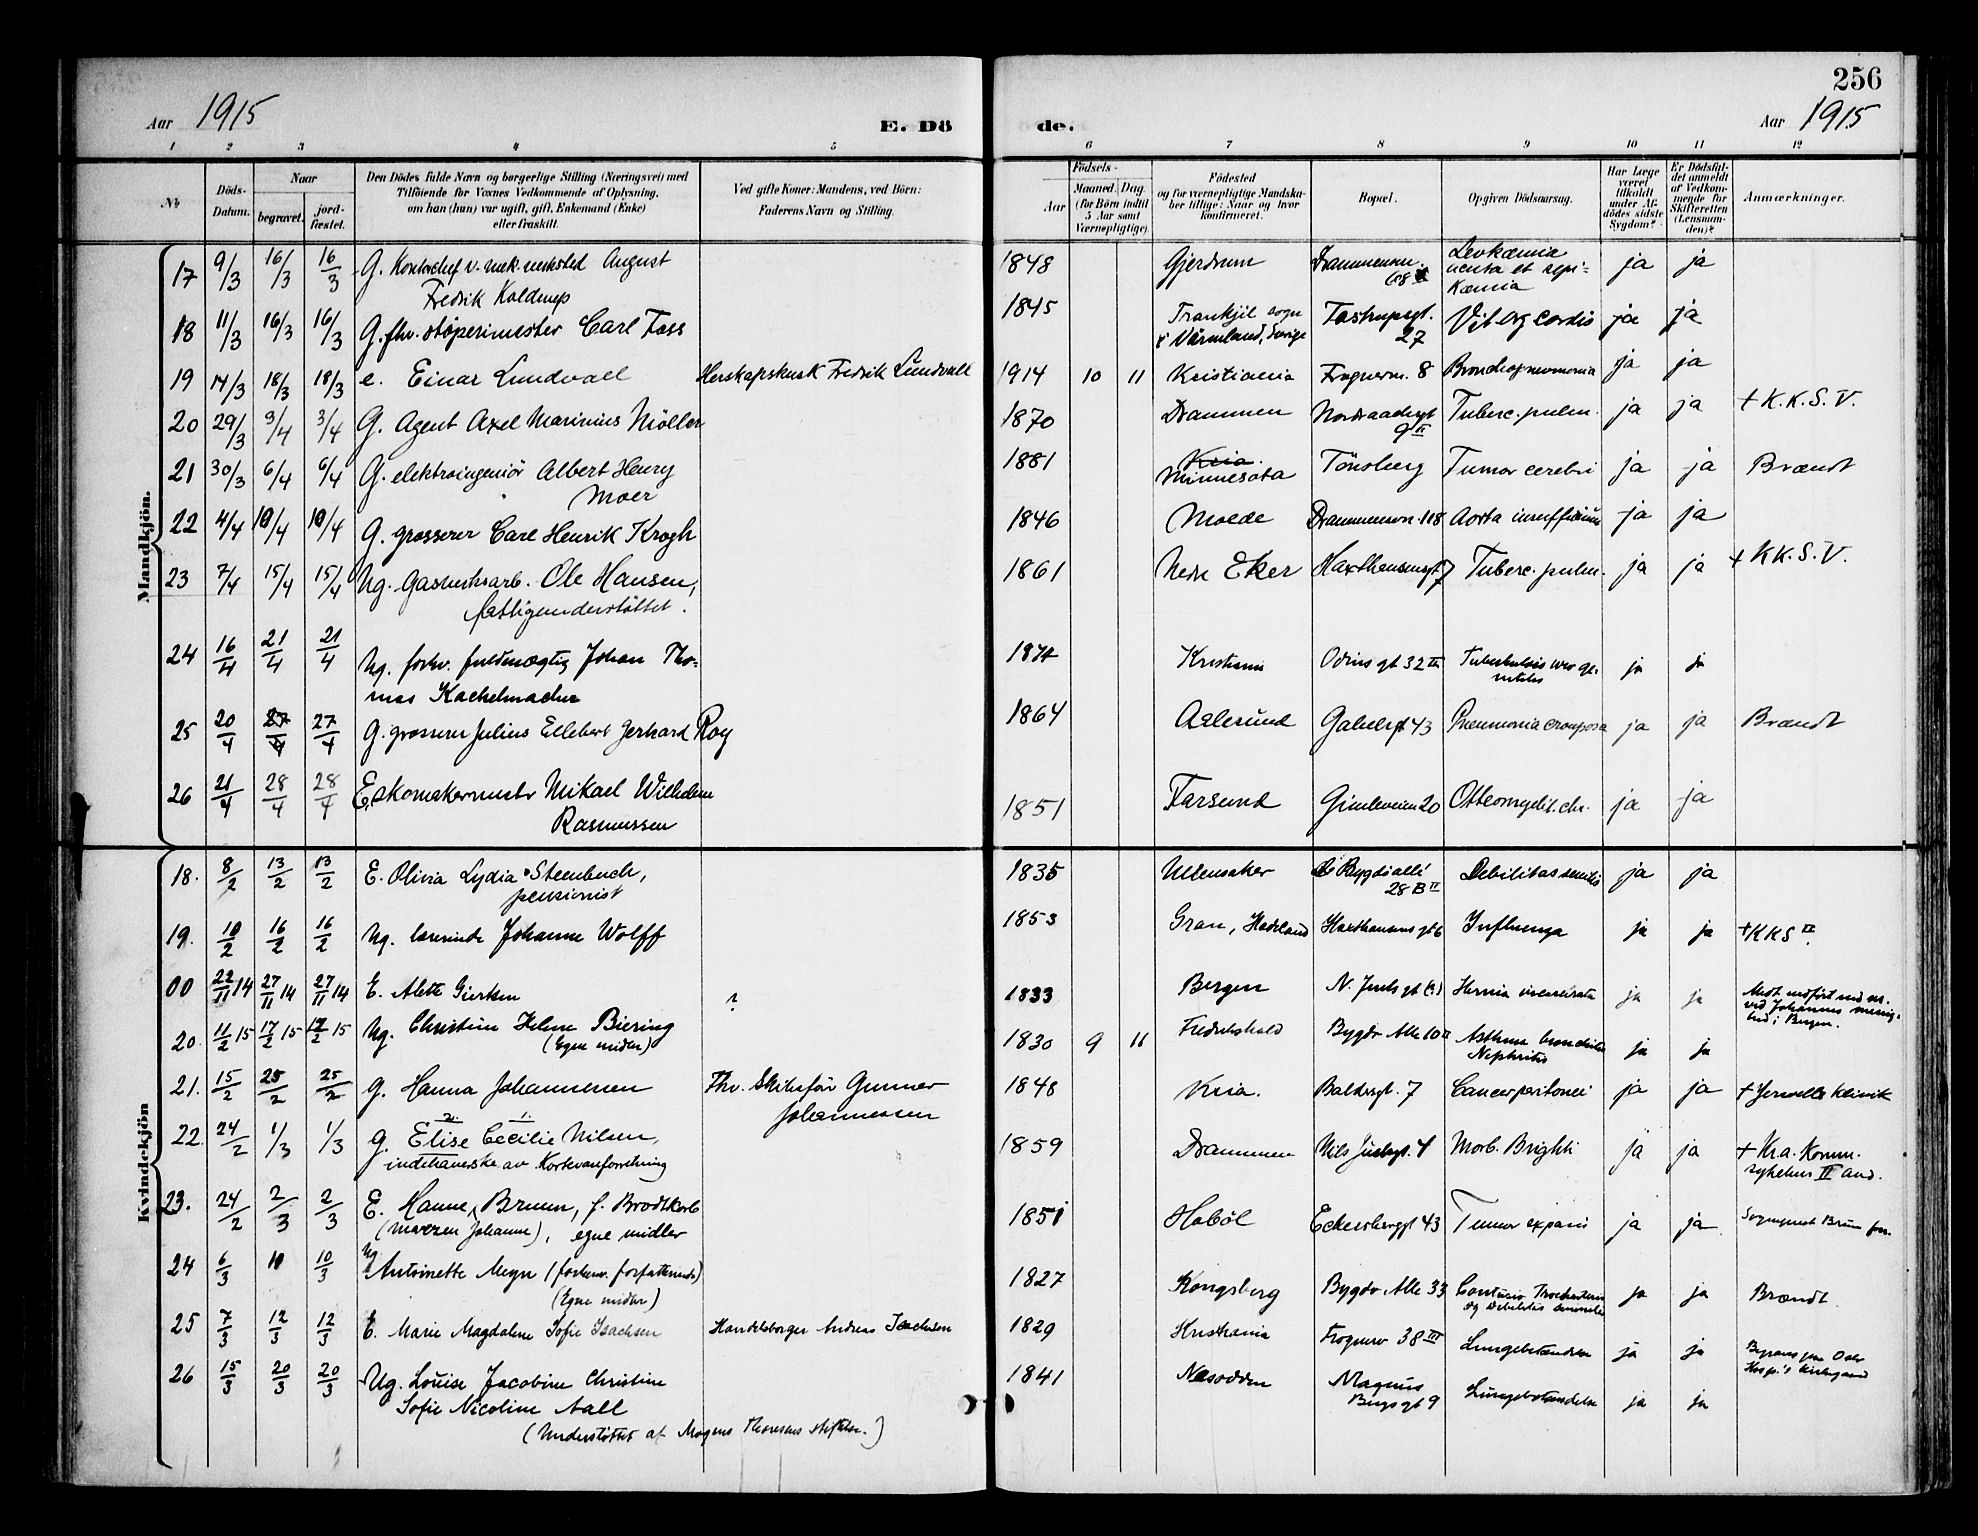 256
Aar 1915
E. Dö
de.
Aar 1915
1 2 3 4 5
6 7 8 9 10 11 12
№
Döds-
Datum.
Naar
begravet.
jord-
fæstet.
Den Dödes fulde Navn og borgerlige Stilling (Næringsvei) med
Tilföiende for Voxnes Vedkommende af Oplysning,
om han (hun) var ugift, gift, Enkemand (Enke)
eller fraskilt.
Ved gifte Koner: Mandens, ved Börn:
Faderens Navn og Stilling.
Födsels-
Aar
Maaned. (for Börn indtil 5 Aar samt Værnepligtige)
Dag.
Födested
og for værnepligtige Mandska-
ber tillige: Naar og hvor
konfirmeret.
Bopæl.
Opgiven Dödsaarsag.
Har Læge
været
tilkaldt
under Af-
dödes sidste
Sygdom?
Er Dödsfal-
det anmeldt
af Vedkom-
mende for
Skifteretten
(Lensman-
den)?
Anmærkninger.
Mandkjön.
17 9/3 16/3 16/3 G. Kontorchef v. mek. verksted August
Fredrik Kolderup
1848 Gjerdrum Drammensv. 68 Levkæmia acuta et septi-
kæmia ja ja
18 11/3 16/3 16/3 G. fhv. støperimester Carl Foss
1845 Trankjil sogn
i Värmland, Sverige Tostrupsgt.
27 Vit. org. cordis ja ja
19 14/3 18/3 18/3 e. Einar Lundvall Herskapskusk Fredrik Lundvall
1914 10 11 Kristiania Frognerv. 8 Bronchopneumonia ja ja
20 29/3 3/4 3/4 G. Agent Axel Marinius Möller
1870 Drammen Nordraaksgt
9 II Tuberc. pulm. ja ja + K.K.S.V.
21 30/3 6/4 6/4 G. elektroingeniör Albert Henry
Moer
1881 Kria.
Minnesota Tönsberg Tumor cerebri ja ja Brændt
22 4/4 10/4 10/4 G. grosserer Carl Henrik Krogh
1846 Molde Drammensv. 118 Aorta insufficiens ja ja
23 7/4 15/4 15/4 Ug. Gasverksarb. Ole Hansen,
fattigunderstöttet.
1861 Nedr Eker Haxthausensgt. 7 Tuberc. pulm. ja ja + KK.S.V.
24 16/4 21/4 21/4 Ug. forhv. fuldmægtig Johan Tho-
mas Kachelmacher
1874 Kristiania Odins gt 32 III Tuberkulosis uro ge-
nitalis ja ja
25 20/4 27/4 27/4 G. grosserer Julius Ellebert Gerhard Roy
1864 Aalesund Gabelsgt 43 Pneumonia crouposa ja ja Brændt
26 21/4 28/4 28/4 E. skomakermestr Mikael Wilhelm
Rasmussen
1851 Farsund Gimleveien 20 Osteomyelit. chr. ja ja
Kvindekjön
18. 8/2 13/2 13/2 E. Olivia Lydia Steenbuch,
pensionist
1835 Ullensaker Bygdöallé
28 B II Debilitas senilis ja ja
19. 10/2 16/2 16/2 Ug. lærerinde Johanne Wolff
1853 Gran, Hadeland Haxthausens gt 6 Influenza ja ja + KKS II.
00 22/11 14 27/11 14 27/11 14 E. Alette Giertsen ?
1833 Bergen N. Juels gt (?) Hernia incarcerata ja ja
ved Johannes menig-
hed i Bergen.
20. 11/2 15 17/2 15 17/2 15 Ug. Christine Helene Biering
(Egne midler)
1830 9 11 Fredrikshald Bygdø Alle 10 II Asthma bronchiale
Nephritis ja ja
21. 15/2 25/2 25/2 g. Hanna Johannessen Fhv. Skibsför Gunner
Johannessen
1848 Kria. Baldersgt. 7 Cancer peritonei ja ja + Jervells klinik
22. 24/2 1/3 1/3 2. 1.
g. Elise Cecilie Nilsen,
indehaverske av Kortevareforretning
1859 Drammen Nils Juelsgt. 4 Morb. Brightii ja ja + Kra. Komm.
sykehus II avd.
23. 24/2 2/3 2/3 E. Hanne Bruun, f. Brodtkorb
(Maren Johanne), egne midler
1851 Hoböl Eckersbergsgt 43 Tumor hepatis ja ja Sogneprest Bruun forr.
24 6/3 10 10/3 Ug Antoinette Meyn (forhenv. forfatterinde)
(Egne midler)
1827 Kongsberg Bygdø Alle 33 Contusio Trochanteris
og Debilitas senilis ja ja Brændt
25 7/3 12/3 12/3 E. Marie Magdalene Sofie Isachsen Handelsborger Andreas Isachsen
1829 Kristiania Frognerv 38 III Lungebetændelse ja ja
26 15/3 20/3 20/3 Ug. Louise Jacobine Christine
Sofie Nicoline Aall
(Understöttet af Mogens Thoresens stiftelse.)
1841 Næsodden Magnus
Bergs gt 9 Lungebetændelse ja ja